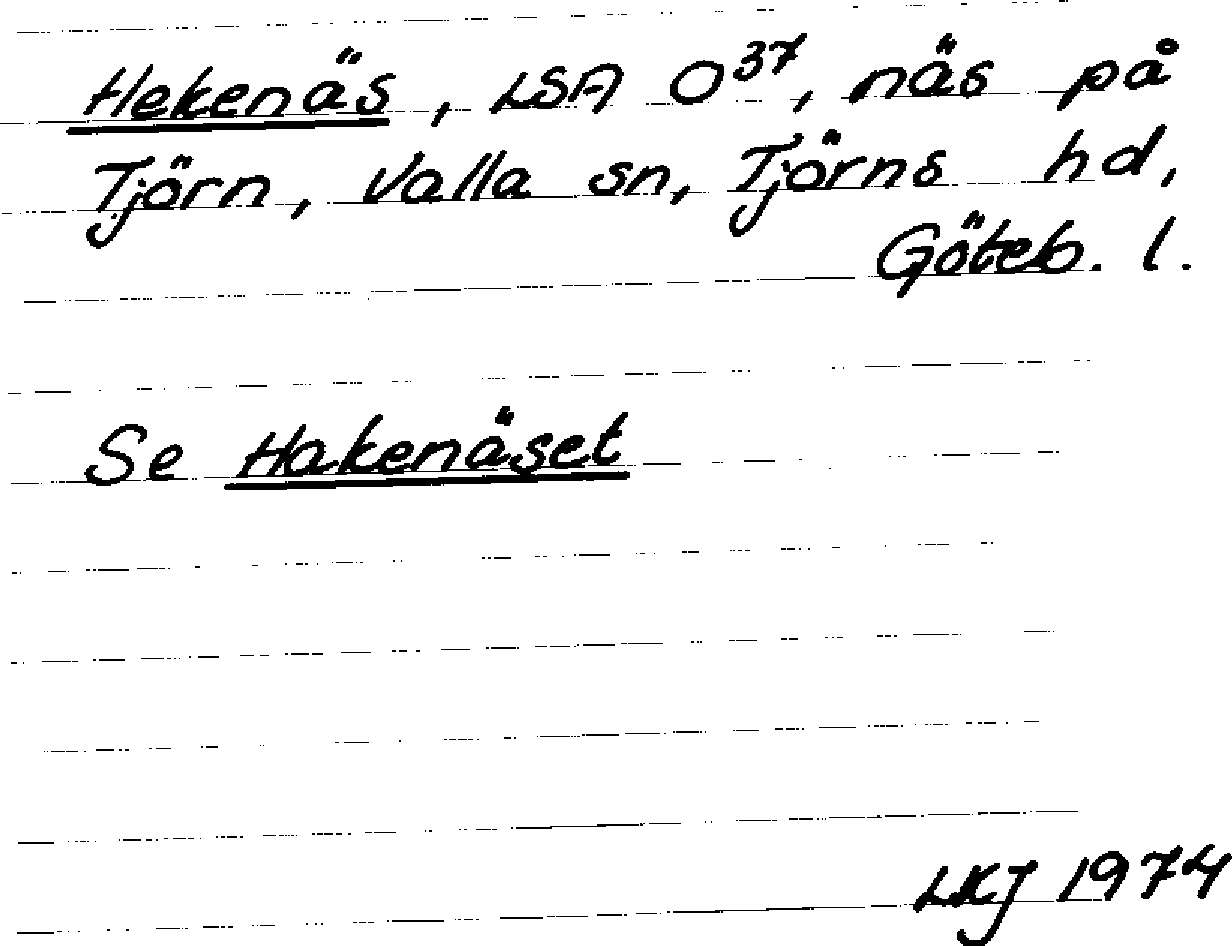 Hekenäs, LSA O³⁷, näs på
Tjörn, Valla sn, Tjörns hd,
Göteb. l.
Se Hakenäset
LKJ 1974